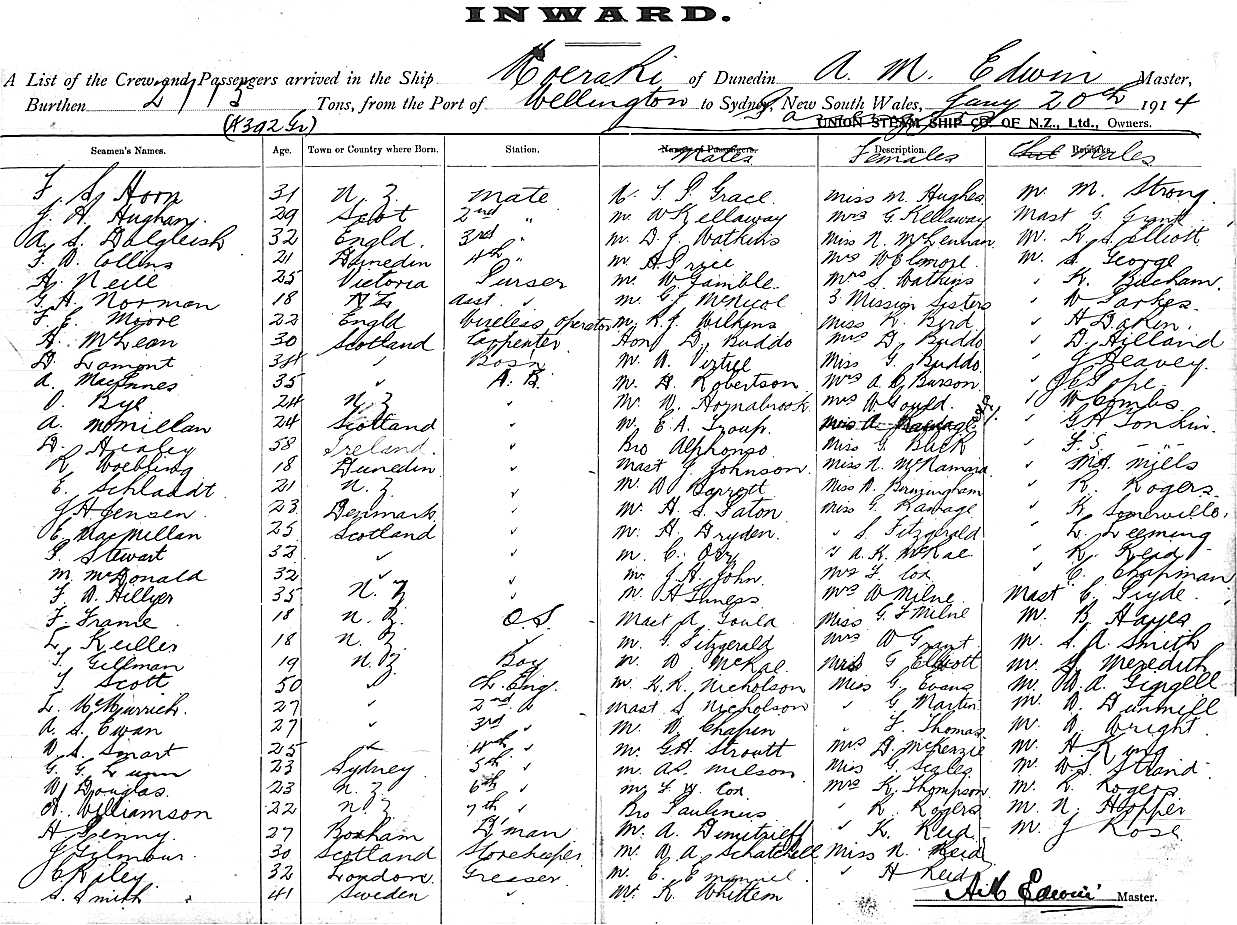 INWARD.
A List of the Crew and Passengers arrived in the Ship Moeraki of Dunedin A. M. Edwin Master,
Burthen 2713 Tons, from the Port of Wellington to Sydney, New South Wales, Jany 20th 1914
(4392 Gr) UNION STEAM SHIP CO. OF N.Z., Ltd., Owners.
Seamen's Names. Age. Town or Country where Born. Station. Names of Passengers. Males Description. Females Remarks. Males
31 N. Z. Mate Grace miss M Hughes mr M. Strong
J. H. Hughan 29 Scot 2nd " m W Kellaway mrs G Kellaway Mast G. Grant
A. S. Dalgleish 32 Engld. 3rd " m D. J. Watkins Miss N. McLennan Mr K. S. Elliott
F. W. Collins 21 Dunedin 4th " m H Price mrs W Elmore m S. George
H. Neill 25 Victoria Purser m W Gamble mrs S. Watkins " K.
G. H. Norman 18 N Z asst " m G. J. McNicol 3 Mission Sisters " W Parkes
F. E. Moore 22 Engld Wireless operator m R. J. Wilkins Miss K. Byrd " H Daken
H. McLean 30 Scotland Carpenter Hon D. Buddo mrs D. Buddo " D. Hilland
D. Lamont 34 " Bos'n m A. Virtue Miss G. Buddo " J Heavey
A. MacInnes 35 " A. B. m D. Robertson mrs A. E. Burson " J C Pope
Bye 24 N. Z. " m W. Hornabrook mrs W Gould " W Combs
A. McMillan 24 Scotland " m E. A. Troup " G H Tonkin
D. Healey 58 Ireland " Bro Alphonso Miss G. Buck " F. S. -"-
R. Woebling 18 Dunedin " Mast G. Johnson Miss N. McNamara
E. Schlaadt 21 N. Z. " m W Barrott Miss A Birmingham " R. Rogers
J H Jensen 23 Denmark " m H. S. Paton Miss G. Ramage " K
E. MacMillan 25 Scotland " m H. Dryden " S. Fitzgerald " L. Leeming
P. Stewart 32 " " m C. Orr " A. K. McKae " R. Read
M. McDonald 32 " " m J. H. John mrs F. Cox " C. Chapman
F. W. Hillyer 35 N. Z " m H Inness mrs W Milne Mast C.
F. Frame 18 N. Z. O. S. Mast A. Gould Miss G. F Milne m. B. Hayes
L. Keiller 18 N. Z. " m G. Fitzgerald mrs W Grant m. S. A Smith
T. Gillman 19 N. Z Boy m W. McKae G. Elliott m S. Meredith
Scott 50 " Ch. Eng. m K. R. Nicholson Miss G. Evans m W. A.
L. McMurrich 27 " 2nd " Mast S Nicholson " G Martin m W Dunnell
A. S. Ewan 27 " 3rd " m W Chapin " F. Thomas m W Wright
W. S. Smart 25 " 4th " m G. H. Stroutt mrs D. McKenzie m H King
G. G. Lunn 23 Sydney 5th " m A. S. Milson Miss G. Scales m W. S. Strand
W Douglas 23 N. Z 6th " m F. W. Cox mrs K. Thompson m R. Rogers
A. Williamson 22 N. Z. 7th " Bro Paulinus " R. Rogers m N. Hopper
H Penny 27 D'man m A. Dimitrieff " K. Reid m J Rose
J Gilmour 30 Scotland Storekeeper m W A. Schatchell Miss N. Reid
J C Kiley 32 London Greaser m C. Emanuel " H Reid
S. Smith 41 Sweden " Mr R. Whittem
A M Edwin Master.